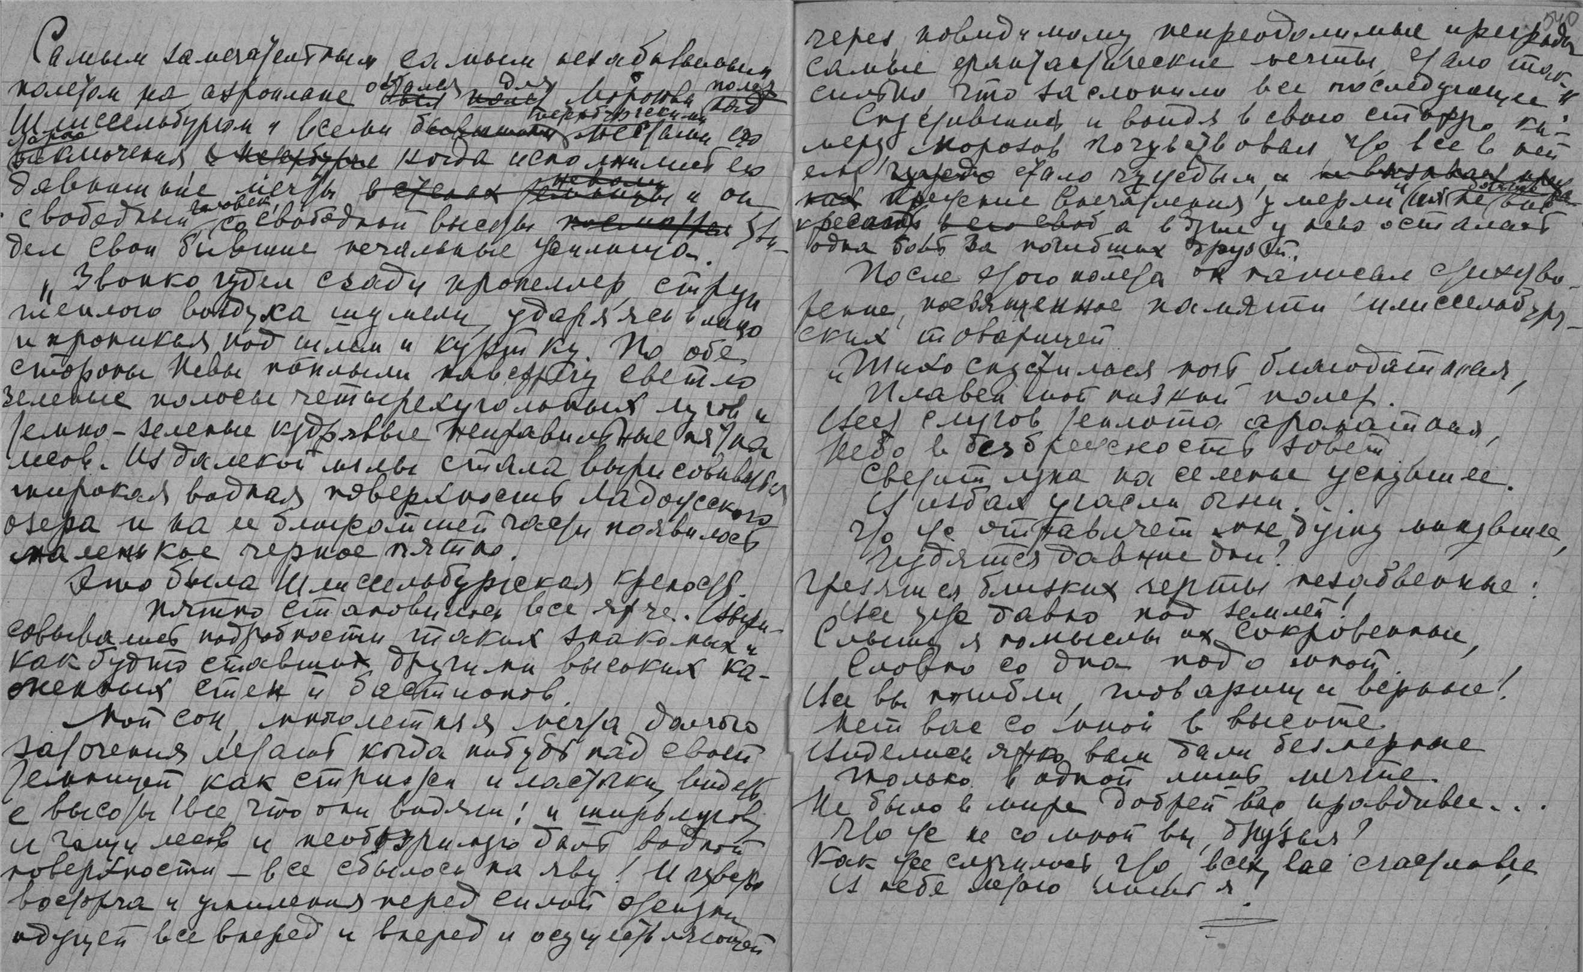 Самым замечательным самым незабываемым
полетом на аэроплане остался для Морозова полет
над Шлиссельбургом и всеми бывшими местами его
заключения когда исполнилась его
давнишние мечты и он
свободный человек со свободной высоты уви-
дел свои бывшие печальные жилища.
„Звонко гудел сзади пропеллер, струи
теплого воздуха шумели, ударяясь в лицо
и проникая под шлем и куртку. По обе
стороны Невы поплыли навстречу светло
зеленые полосы четырехугольных лугов и
темно-зеленые кудрявые неправильные пятна
лесов. Из далекой мглы стала вырисовываться
широкая водная поверхность Ладожского
озера и на ее ближайшей части появилось
маленькое черное пятно.
Это была Шлиссельбургская крепость.
Пятно становилось все ярче. Выри-
совывались подробности таких знакомых и
как будто ставших другими высоких ка-
менных стен и бастионов.
Мой сон, многолетняя мечта долгого
заточения летать когда нибудь над своей
темницей, как стрижи и ласточки, видеть
с высоты все, что они видят: и ширь лугов,
и чащи лесов и необозримую даль водной
поверхности — все сбылось на яву! И чувство
восторга и умиления перед силой жизни
идущей все вперед и вперед и осуществляющей
540
через, повидимому непреодолимые преграды
самые фантастические мечты, стало так
сильно что заслонило все последующее."
Спустившись и войдя в свою старую ка-
меру Морозов почувствовал что все в ней
ему стало чуждым, и
прежние впечатления умерли и не
воскресали а в душе у него осталась
одна боль за погибших друзей.
После этого полета он написал стихотво-
рение, посвященное памяти шлиссельбург-
ских товарищей
„Тихо спустилася ночь благодатная,
Плавен мой низкий полет.
Веет с лугов теплота ароматная,
Небо в безбрежность зовет
Светит луна на селенье уснувшее.
В избах угасли огни.
Что же отравляет мне душу минувшее,
Чудятся давние дни?
Грезятся близких черты незабвенные:
Все уже давно под землей!
Слышу я помыслы их сокровенные,
Словно со дна подо мной.
Все вы погибли, товарищи верные!
Нет вас со мной в высоте.
Виделись ярко вам дали безмерные
Только в одной лишь мечте.
Не было в мире добрей вас правдивее...
Что же не со мной вы, друзья?
Как же случилось что всех вас счастливее
В небе летаю лишь я!